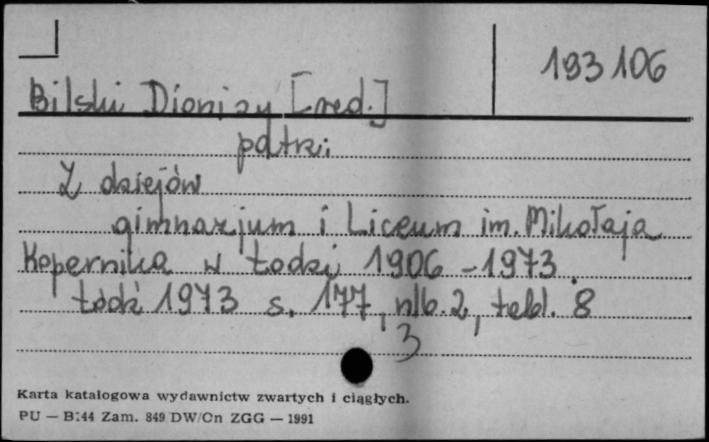 193106
Bilski Dionizy [red.]
patrz:
Z dziejów
gimnazjum i Liceum im. Mikołaja
Kopernika w Łodzi 1906-1973.
Łódź 1973 s. 177, nlb. 2, tabl. 8
3
Karta katalogowa wydawnictw zwartych i ciągłych.
PU — B:44 Zam. 849 DW/Cn ZGG — 1991